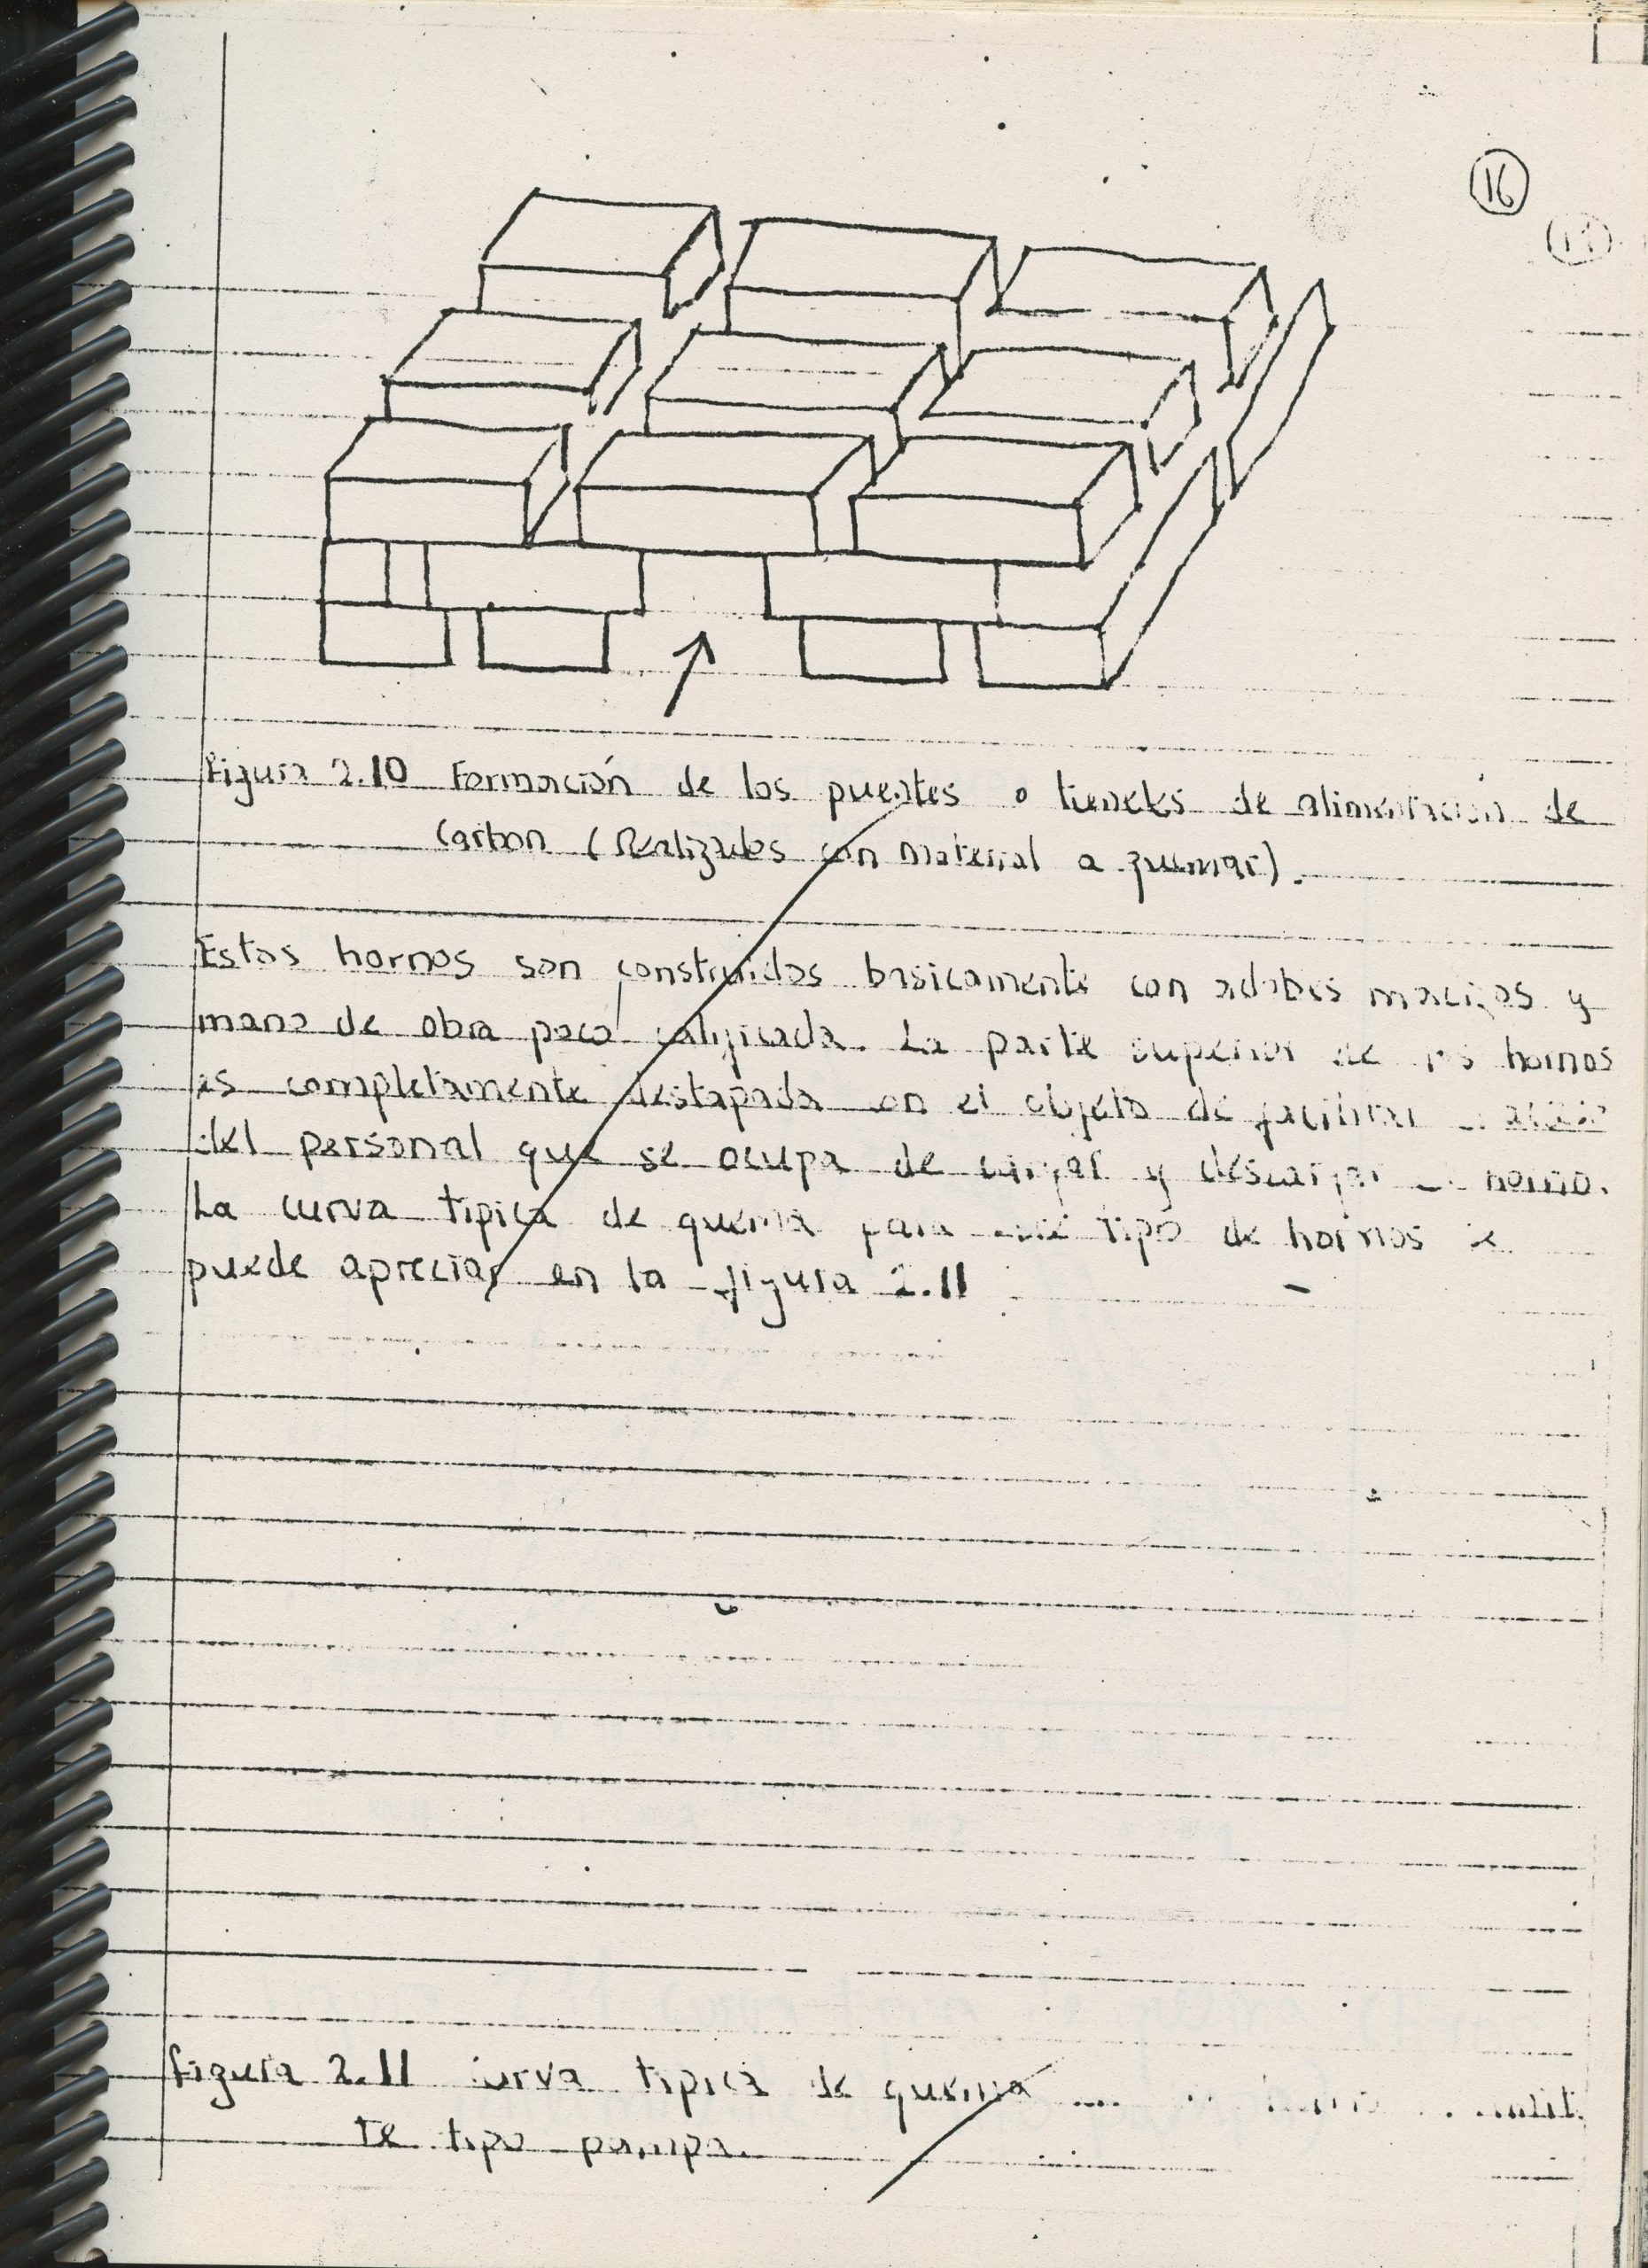 16
Figura 2.10 Formación de los puentes o de alimentación de
Carbon (Realizados con Material a quemar).
Estos hornos son construidos basicamente con adobes macizos y
mano de obra poco calificada. La parte superior de los hornos
es completamente destapada en el objeto de facilitar
del personal que se ocupa de cargar y descargar el horno.
La curva tipica de quema para este tipo de hornos se
puede apreciar en la figura 2.11
figura 2.11 Curva tipica de quema
te tipo pampa.